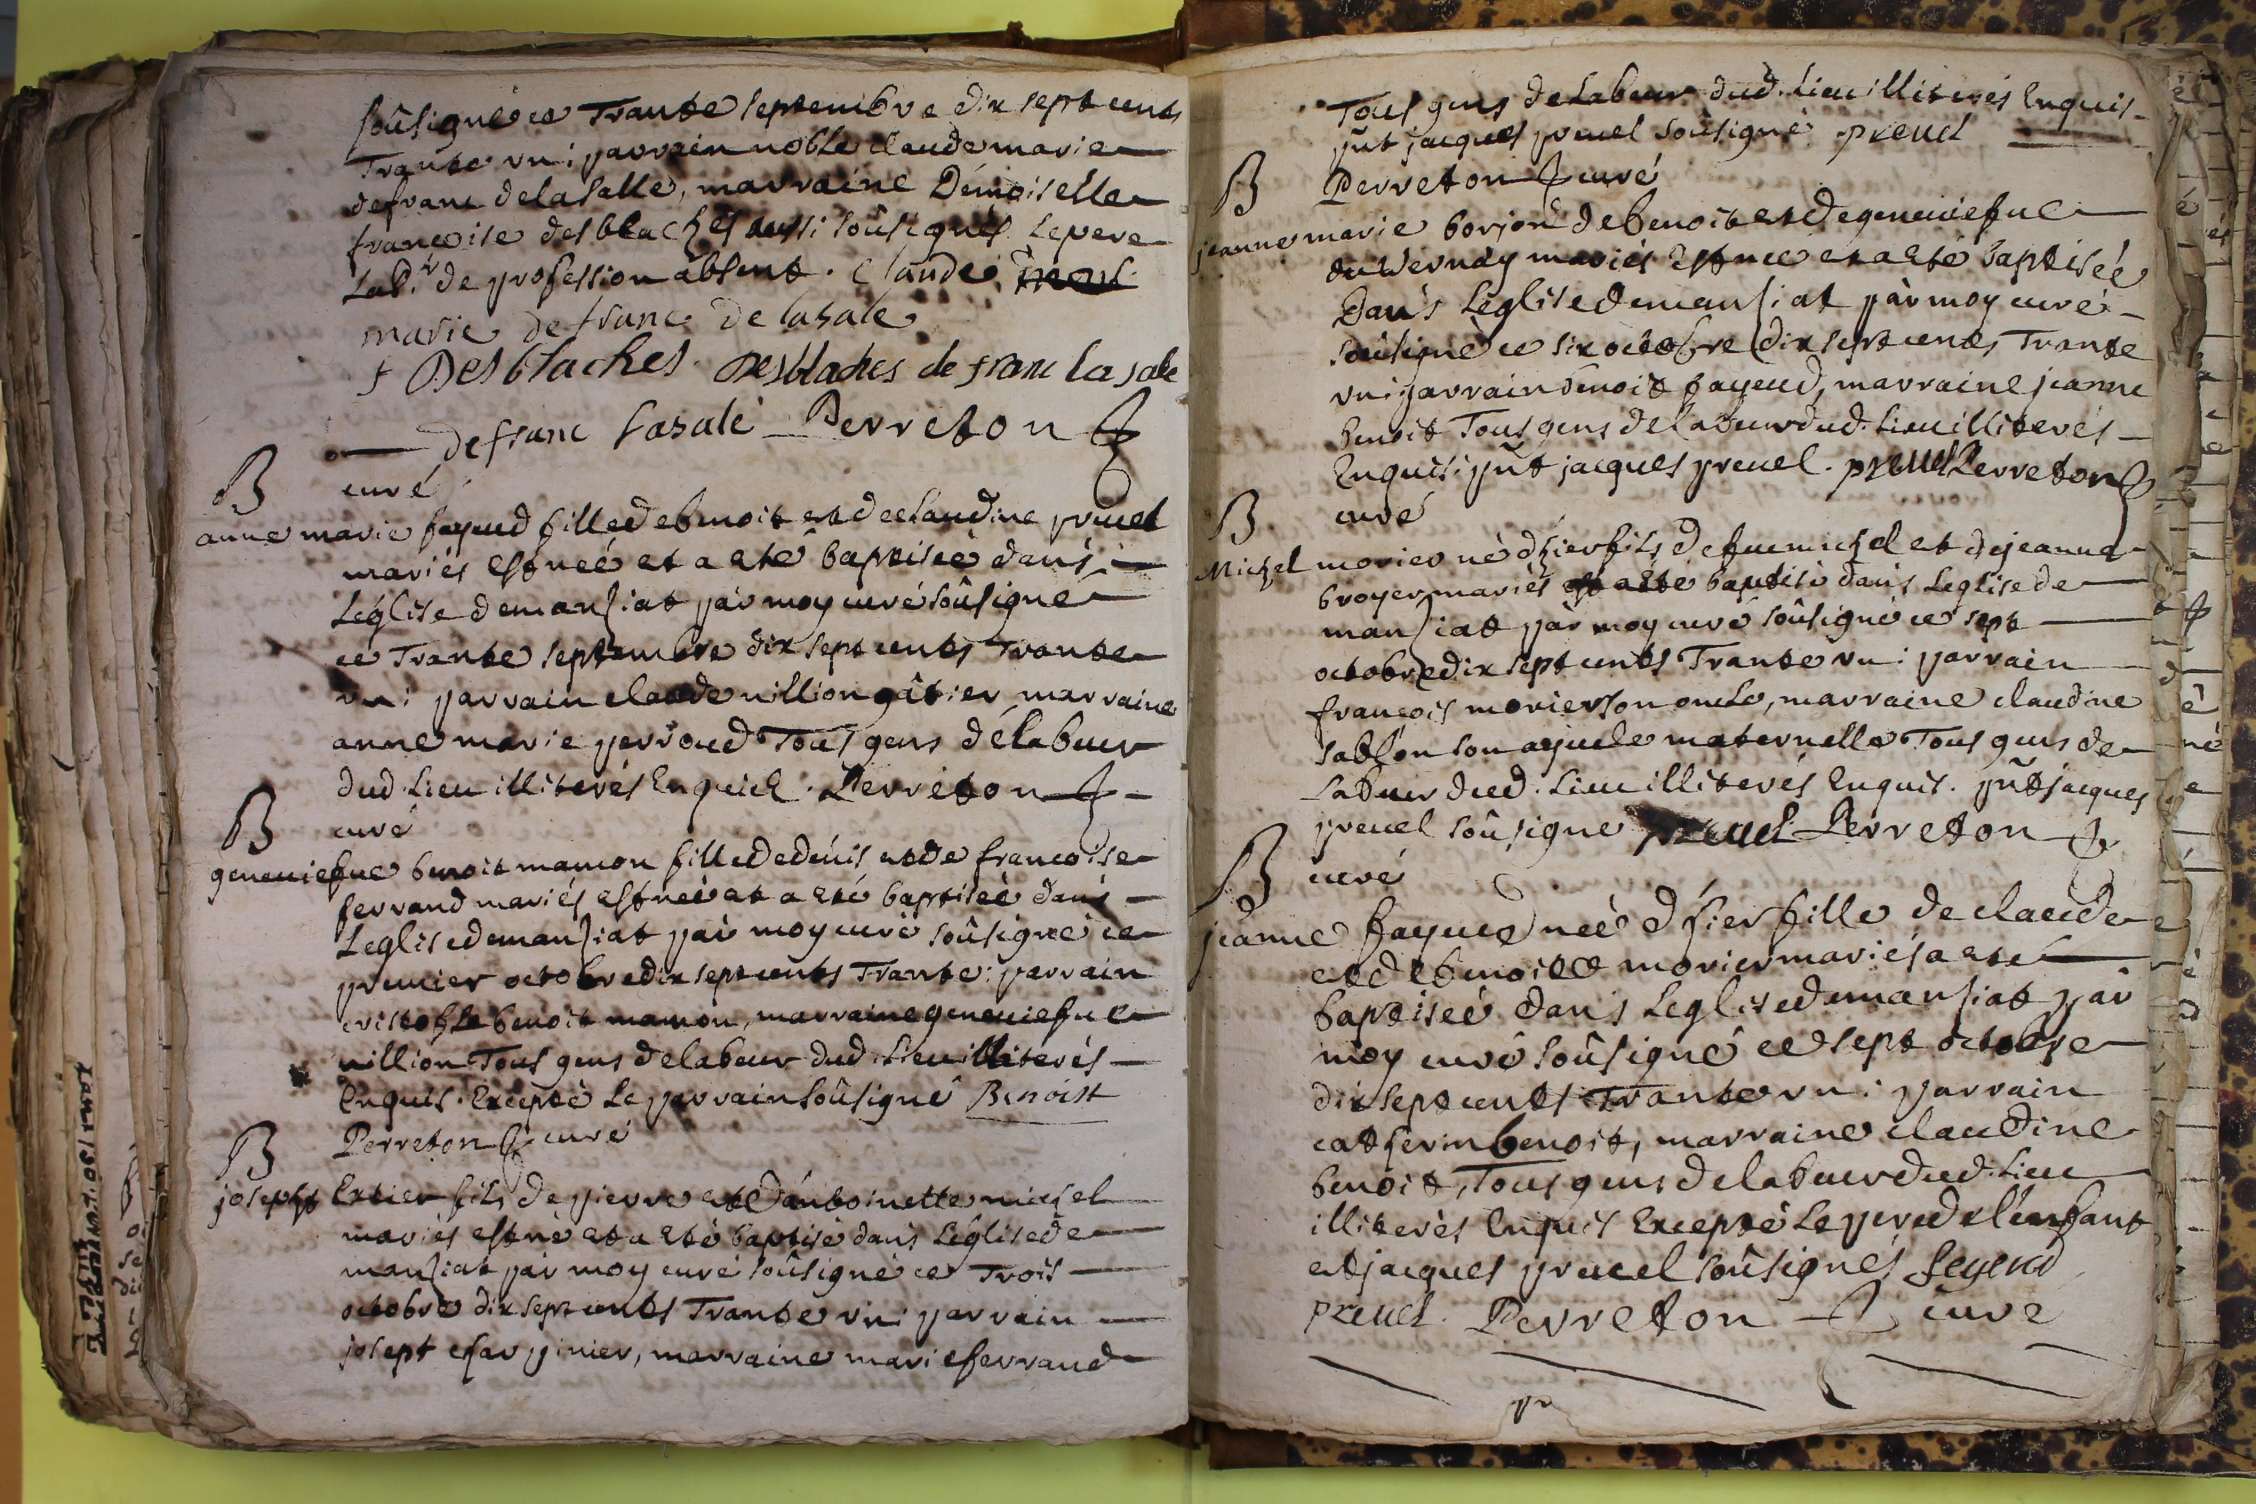 soûsigné ce Trante septembre dix sept cents
Trante vn : parrain noble claude marie
defranc delasalle, marraine Démoiselle
francoise desblaches aussi soûsignés. Le pere
Lab.r de profession absent. Claude
marie defranc de lasale
f Desblaches. Desblaches de franc la sale
defranc lasale Perreton
curé
B
anne marie fayeud fille de benoit et de claudine preuel
mariés est neé et a eté baptiseé dans
Léglise de mansiat par moy curé soûsigné
ce Trante septembre dix sept cents Trante
vn : parrain claude nillion gâtier, marraine
anne marie perroud Tous gens de labeur
dud. Lieu illiterés Enquis. Perreton
curé
B
geneuiefue benoit mamon fille de denis et de francoise
ferrand mariés est neé et a eté baptiseé dans
Leglise de mansiat par moy curé soûsigné ce
premier octobre dix sept cents Trante : parrain
cristofle benoit mamon, marraine geneuiefue
nillion Tous gens de labeur dud. Lieu illiterés
Enquis. Excepté Le parrain soûsigné Benoist
Perreton curé
B
josepht Extier fils de pierre et d'antoinette michel
mariés est né et a eté baptisé dans Léglise de
mansiat par moy curé soûsigné ce Trois
octobre dix sept cents Trante vn : parrain
josept charpinier, marraine marie ferrand
Tous gens de Labeur dud. Lieu illiterés Enquis.
pñt jacques preuel soûsigné. preuel
Perreton curé
B
jeanne marie borjon de benoit et de geneuiefue
du Vernay mariés Est neé et a eté baptiseé
Dans Léglise de mansiat par moy curé
soûsigné ce six octobre dix sept cents Trante
vn : parrain benoit fayeud, marraine jeanne
benoit Tous gens de labeur dud. Lieu illiterés
Enquis. pñt jacques preuel. preuel Perreton
curé
B
Michel morier né d'hier fils de feu michel et de jeanne
broyer mariés a eté baptisé dans Leglise de
mansiat par moy curé soûsigné ce sept
octobre dix sept cents Trante vn : parrain
francois morier son oncle, marraine claudine
sablon son ayeule maternelle Tous gens de
Labeur dud. Lieu illiterés Enquis. pñt jacques
preuel soûsigné preuel Perreton
curé
B
jeanne fayeud neé d'hier fille de claude
et de benoitte morier mariés a eté
baptiseé dans Leglise de mansiat par
moy curé soûsigné ce sept octobre
dix sept cents Trante vn : parrain
catherin benoit, marraine claudine
benoit, Tous gens de labeur dud. Lieu
illiterés Enquis Excepté Le pere de l'enfant
et jacques preuel soûsignés feyeud
preuel. Perreton curé